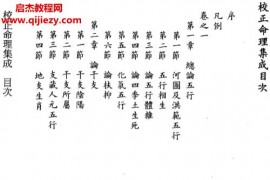 校正命理集成目次
序
凡例
卷之一
第一章 總論五行
第一節 河圖及洪範五行
第二節 五行相生
第三節 論五行體雜
第四節 論四季土生死
第五節 化氣五行
第六節 論扶抑
第二章 論干支
第一節 干支陰陽
第二節 干支所屬
第三節 支藏人元五行
第四節 地支生肖
校正命理集成 目次
啟杰教程网
www.qijiejc.com